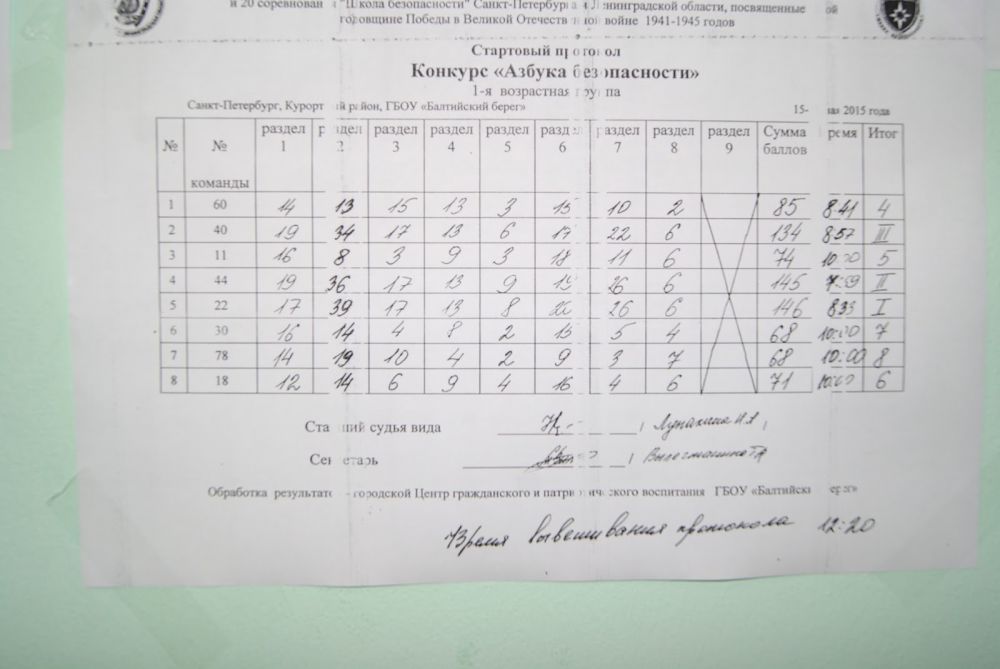 и 20 соревнован "Школа безопасности" Санкт-Петербурга и Ленинградской области, посвященные ой
годовщине Победы в Великой Отечественной войне 1941-1945 годов
Стартовый протокол
Конкурс «Азбука безопасности»
1-я возрастная группа
Санкт-Петербург, Курортный район, ГБОУ «Балтийский берег» 15- мая 2015 года
№ № команды раздел 1 раздел 2 раздел 3 раздел 4 раздел 5 раздел 6 раздел 7 раздел 8 раздел 9 Сумма баллов время Итог
1 60 14 13 15 13 3 15 10 2 85 8:41 4
2 40 19 34 17 13 6 17 22 6 134 8:57 III
3 11 16 8 3 9 3 18 11 6 74 10:00 5
4 44 19 36 17 13 9 19 26 6 145 7:59 II
5 22 17 39 17 13 8 20 26 6 146 8:33 I
6 30 16 14 4 8 2 15 5 4 68 10:00 7
7 78 14 19 10 4 2 9 3 7 68 10:00 8
8 18 12 14 6 9 4 16 4 6 71 10:00 6
Старший судья вида
Секретарь
Обработка результатов - городской Центр гражданского и патриотического воспитания ГБОУ «Балтийский берег»
Время вывешивания протокола 12:20